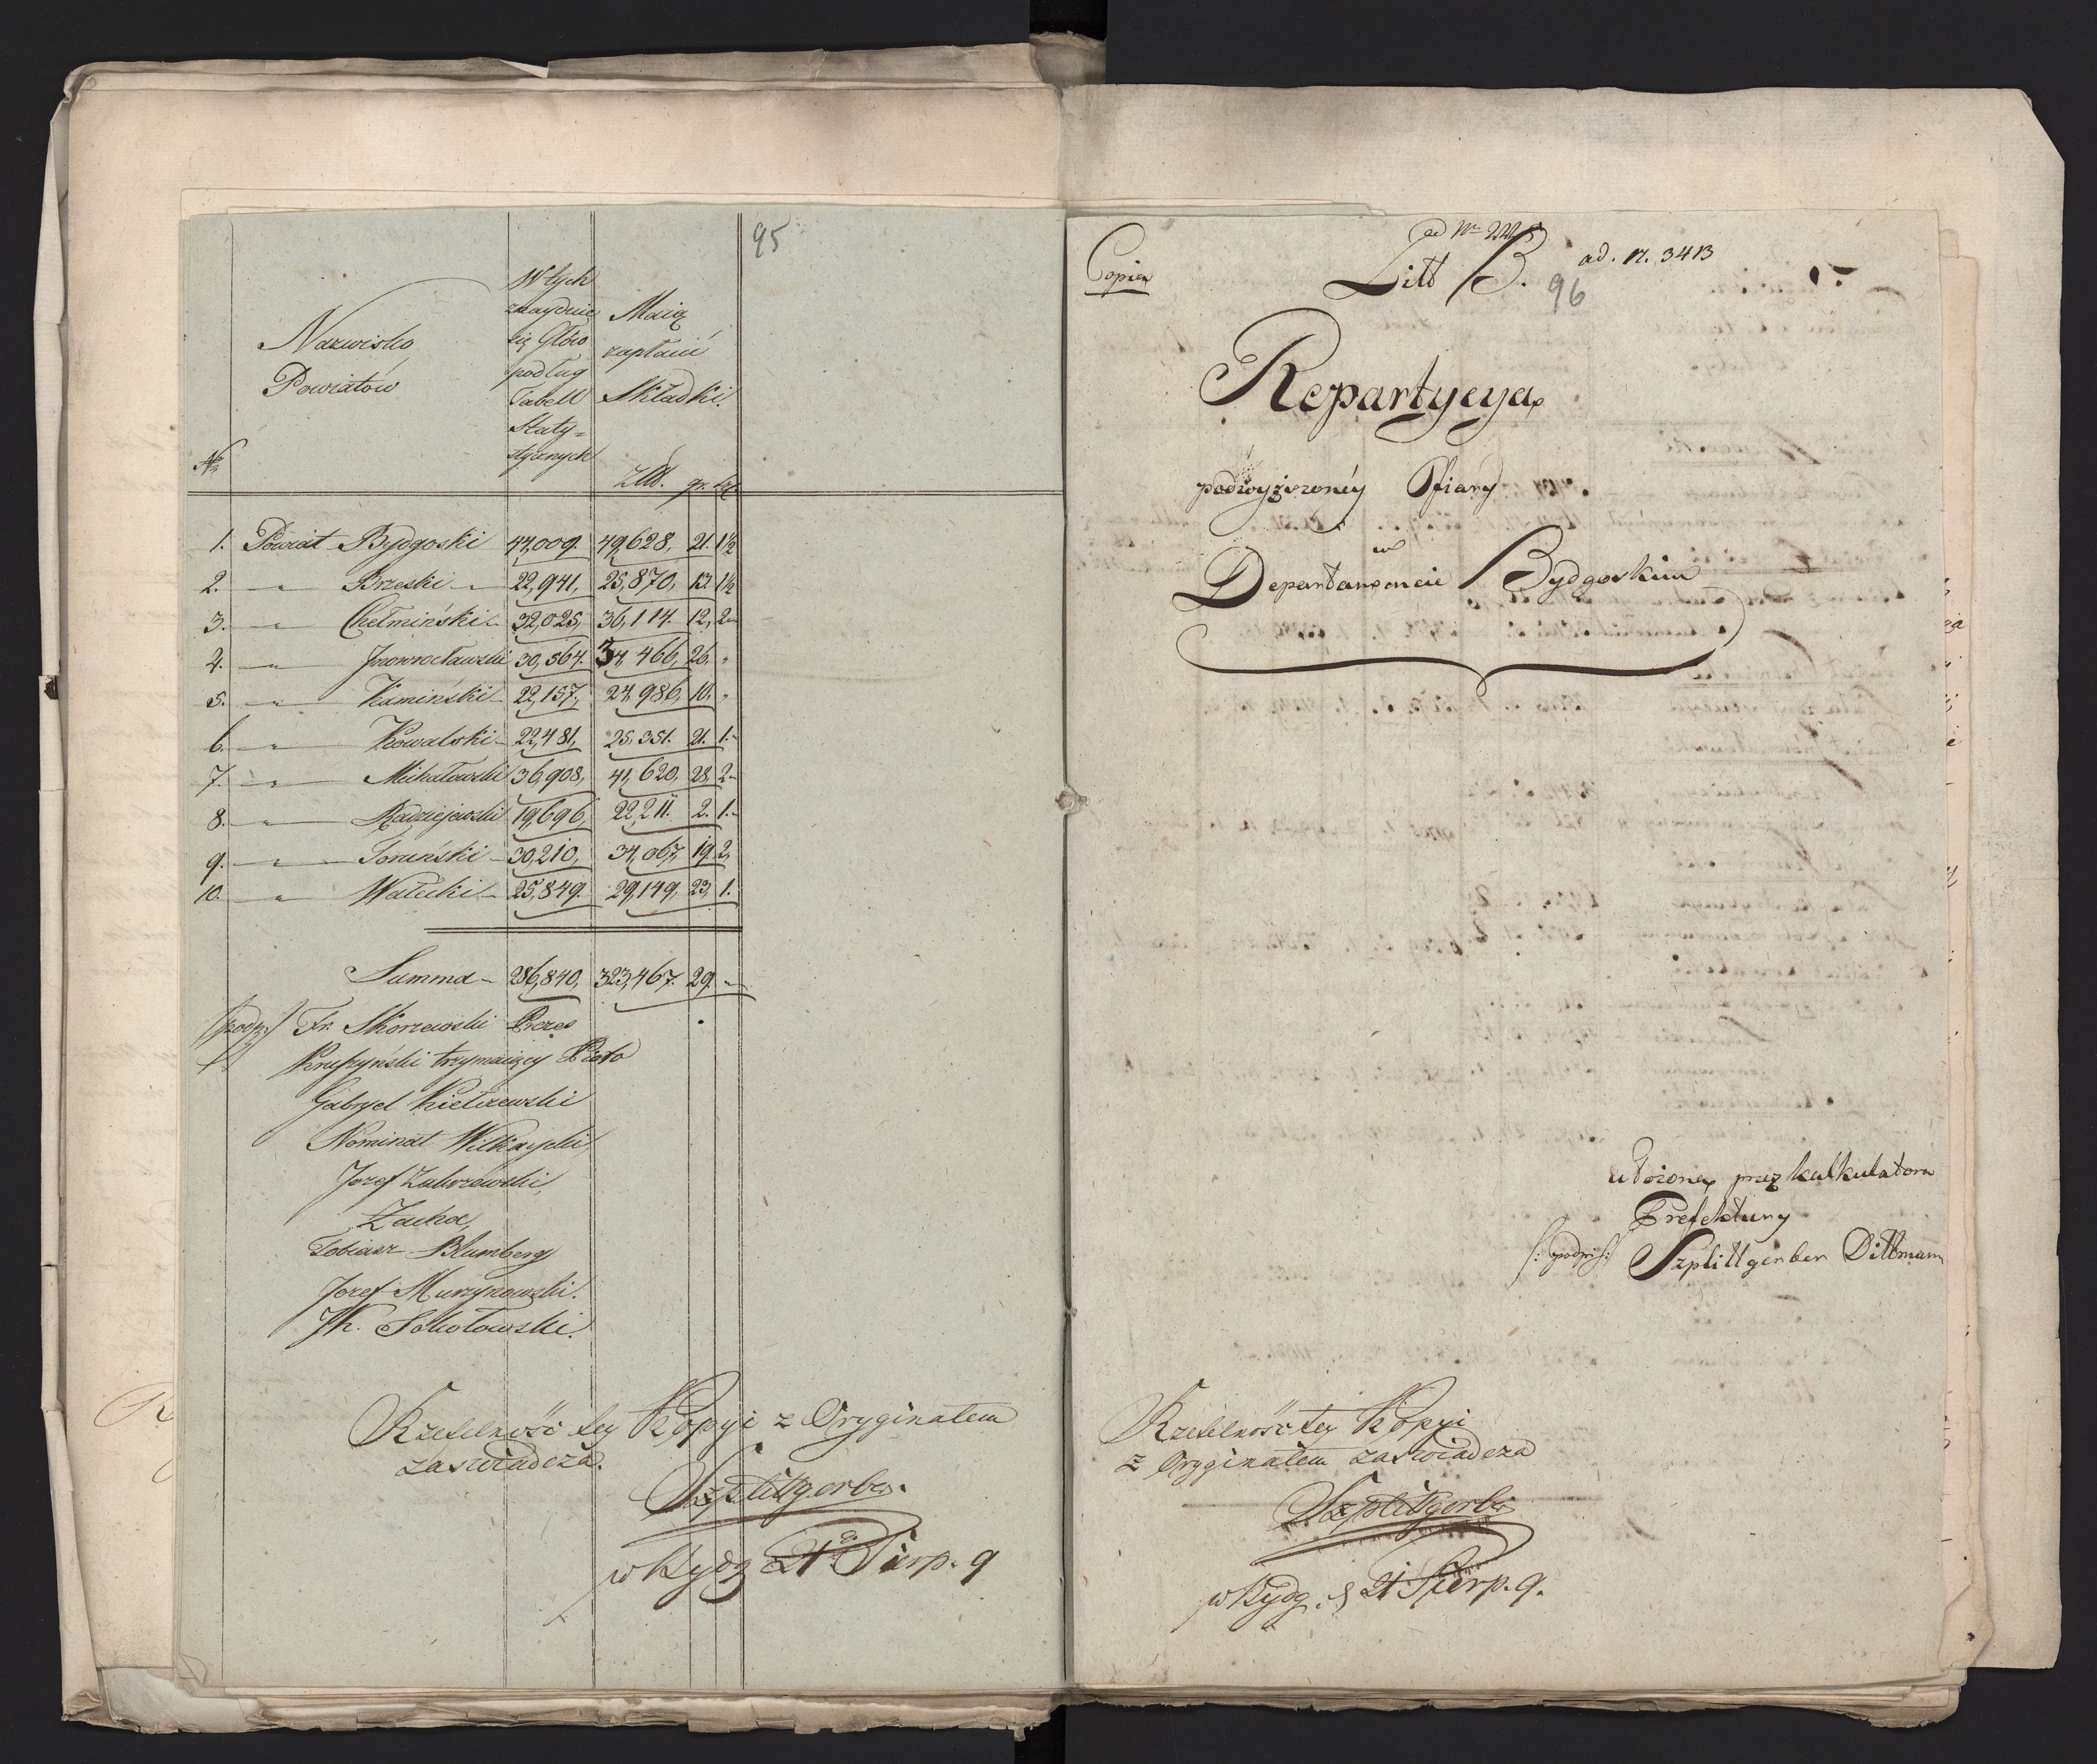 95
Nazwisko
Powiatów
W tych
znayduie
się Głów
podług
Tabell
Staty=
stycznych
Maią
zapłacić
Składki.
№
Złł. gr.
1. Powiat Bydgoski 44,009. 49,628, 21. 1½
2. — " — Brzeski — 22,941, 25,870, 13. 1½
3. — " — Chełmiński — 32,025, 36,114. 12, 2 —
4. — " — Jnowrocławski 30,564. 34,466, 26. "
5. — " — Kamiński — 22,157, 24,986, 10. "
6. — " — Kowalski — 22,481, 25,351. 21. 1. —
7. — " — Michałowski 36,908, 41,620, 28, 2 —
8. — " — Radziejewski 19,696, 22,211. 2. 1. —
9. — " — Toruński — 30,210, 34,067, 19. 2,
10. — " — Wałecki — 25,849. 29,149, 23, 1.
Summa — 286,840, 323,467. 29. —
/podp:/ Fr. Skorzewski Prezes
Kruszyński trzymaiący Pioro
Gabryel Kiełczewski
Nominat Wilkxycki
Jozef Zakrzewski,
Zacha,
Tobiasz Blumberg
Jozef Murzynowski.
Sokołowski.
Rzetelność tey Kopyi z Oryginałem
zaswiadcza.
Szplittgerber.
w Bydg 21 Sierp. 9
Copia
ad Nro
Litt B.
96
ad. N. 3413
Repartycya
podwyższoney Ofiary
w
Departamencie Bydgoskim
ułożona przez kalkulatora
Prefektury
/: podpis :/ Szplittgerber Dittmann
Rzetelność tey Kopyi
z Oryginałem zaswiadcza
Szplittgerber
w Bydg. d 21 Sierp. 9.